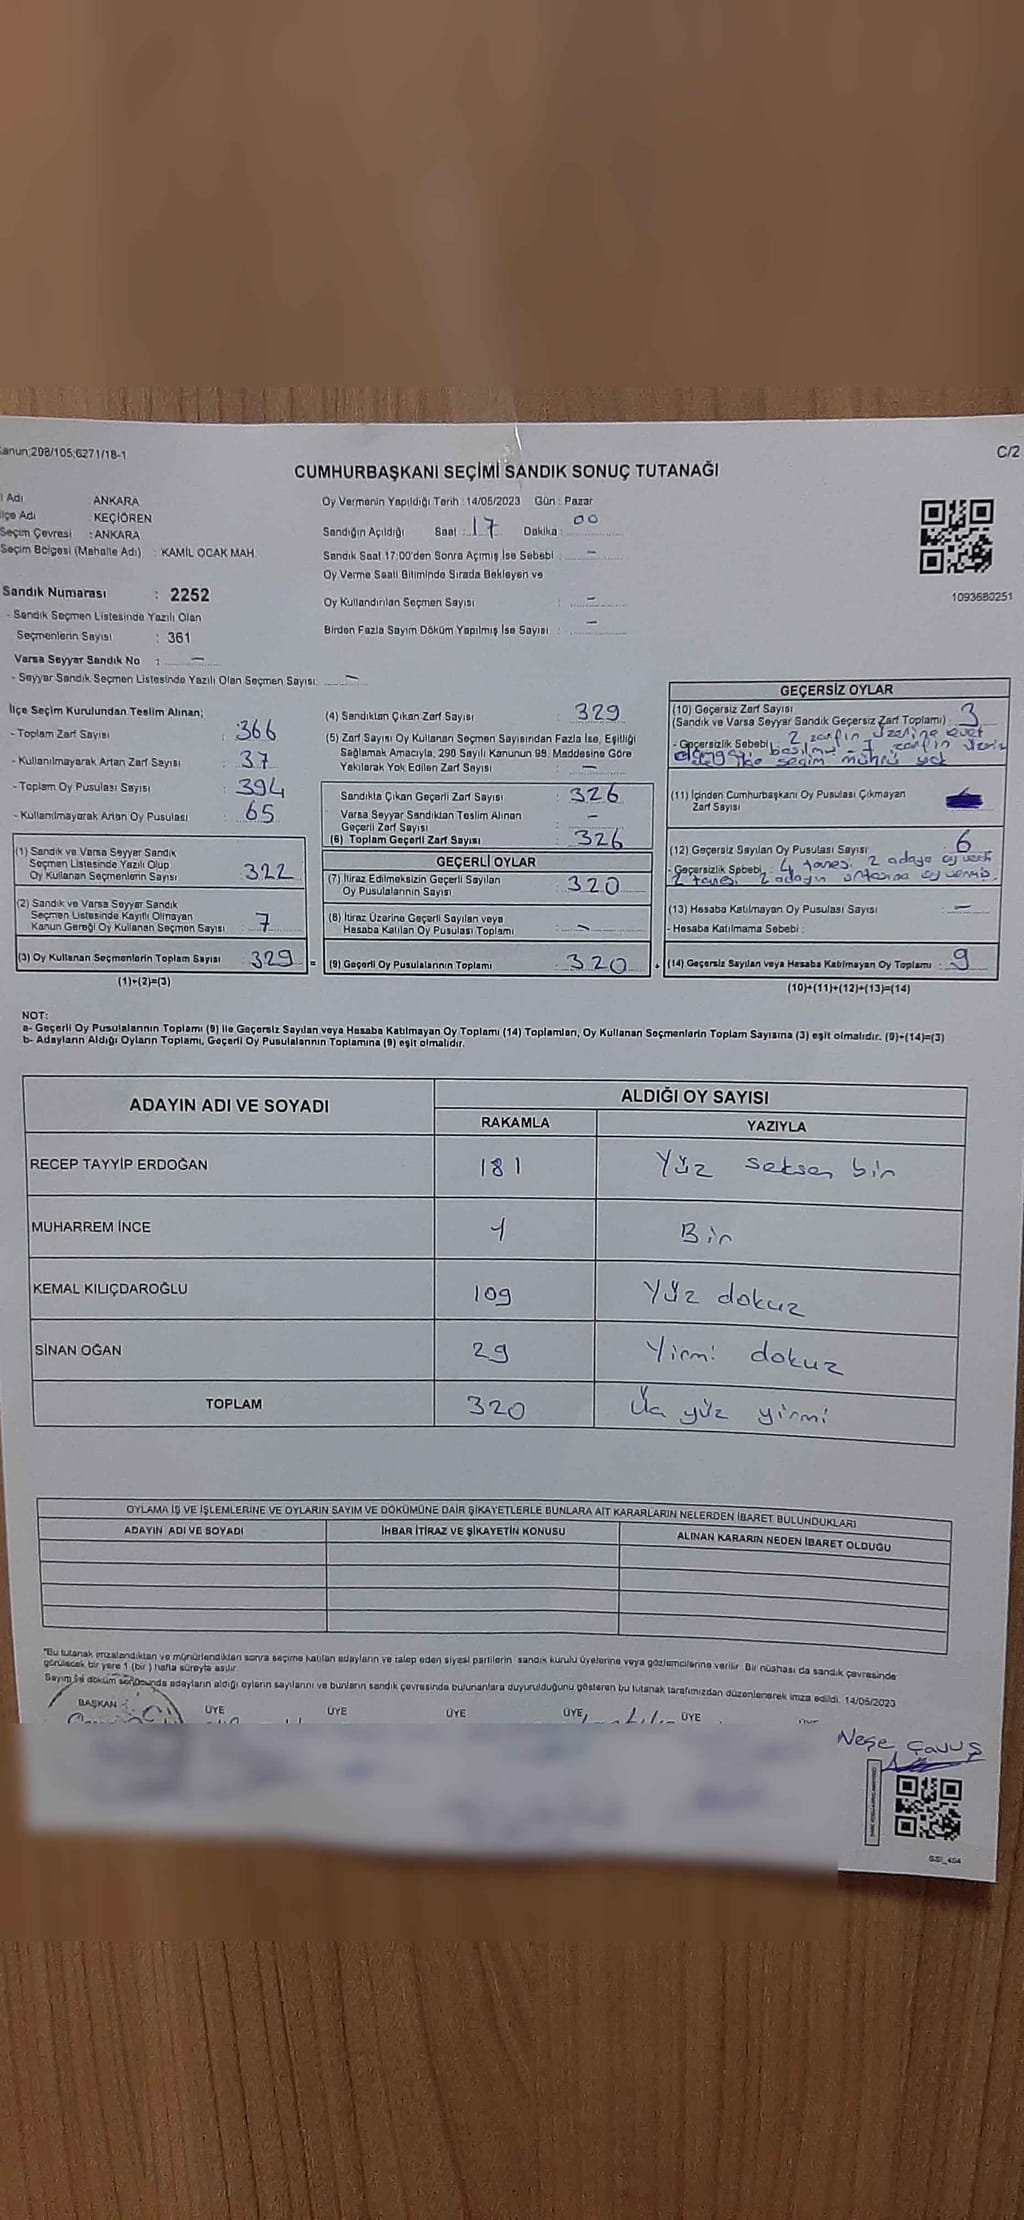 Kanun;298/105,6271/18-1
C/2
CUMHURBAŞKANI SEÇİMİ SANDIK SONUÇ TUTANAĞI
İl Adı : ANKARA
İlçe Adı : KEÇİÖREN
Seçim Çevresi : ANKARA
Seçim Bölgesi (Mahalle Adı) : KAMİL OCAK MAH.
Sandık Numarası : 2252
- Sandık Seçmen Listesinde Yazılı Olan
Seçmenlerin Sayısı : 361
Varsa Seyyar Sandık No : —
- Seyyar Sandık Seçmen Listesinde Yazılı Olan Seçmen Sayısı: —
Oy Vermenin Yapıldığı Tarih : 14/05/2023 Gün : Pazar
Sandığın Açıldığı Saat : 17 Dakika : 00
Sandık Saat 17:00'den Sonra Açmış İse Sebebi : —
Oy Verme Saati Bitiminde Sırada Bekleyen ve
Oy Kullandırılan Seçmen Sayısı : —
Birden Fazla Sayım Döküm Yapılmış İse Sayısı : —
1093680251
İlçe Seçim Kurulundan Teslim Alınan;
- Toplam Zarf Sayısı : 366
- Kullanılmayarak Artan Zarf Sayısı : 37
- Toplam Oy Pusulası Sayısı : 394
- Kullanılmayarak Artan Oy Pusulası : 65
(1) Sandık ve Varsa Seyyar Sandık
Seçmen Listesinde Yazılı Olup
Oy Kullanan Seçmenlerin Sayısı : 322
(2) Sandık ve Varsa Seyyar Sandık
Seçmen Listesinde Kayıtlı Olmayan
Kanun Gereği Oy Kullanan Seçmen Sayısı : 7
(3) Oy Kullanan Seçmenlerin Toplam Sayısı : 329
(1)+(2)=(3)
=
(4) Sandıktan Çıkan Zarf Sayısı : 329
(5) Zarf Sayısı Oy Kullanan Seçmen Sayısından Fazla İse, Eşitliği
Sağlamak Amacıyla, 298 Sayılı Kanunun 98. Maddesine Göre
Yakılarak Yok Edilen Zarf Sayısı : —
Sandıkta Çıkan Geçerli Zarf Sayısı : 326
Varsa Seyyar Sandıktan Teslim Alınan
Geçerli Zarf Sayısı : —
(6) Toplam Geçerli Zarf Sayısı : 326
GEÇERLİ OYLAR
(7) İtiraz Edilmeksizin Geçerli Sayılan
Oy Pusulalarının Sayısı : 320
(8) İtiraz Üzerine Geçerli Sayılan veya
Hesaba Katılan Oy Pusulası Toplamı : —
(9) Geçerli Oy Pusulalarının Toplamı : 320
+
GEÇERSİZ OYLAR
(10) Geçersiz Zarf Sayısı
(Sandık ve Varsa Seyyar Sandık Geçersiz Zarf Toplamı) : 3
- Geçersizlik Sebebi : 2 zarfın üzerine evet
damgası basılmış - 1 zarfın üzerinde
ilçe seçim mührü yok
(11) İçinden Cumhurbaşkanı Oy Pusulası Çıkmayan
Zarf Sayısı
(12) Geçersiz Sayılan Oy Pusulası Sayısı : 6
- Geçersizlik Sebebi : 4 tanesi 2 adaya oy verdi
2 tanesi 2 adayın ortasına oy vermiş.
(13) Hesaba Katılmayan Oy Pusulası Sayısı : —
- Hesaba Katılmama Sebebi :
(14) Geçersiz Sayılan veya Hesaba Katılmayan Oy Toplamı : 9
(10)+(11)+(12)+(13)=(14)
NOT:
a- Geçerli Oy Pusulalarının Toplamı (9) ile Geçersiz Sayılan veya Hesaba Katılmayan Oy Toplamı (14) Toplamları, Oy Kullanan Seçmenlerin Toplam Sayısına (3) eşit olmalıdır. (9)+(14)=(3)
b- Adayların Aldığı Oyların Toplamı, Geçerli Oy Pusulalarının Toplamına (9) eşit olmalıdır.
ADAYIN ADI VE SOYADI
ALDIĞI OY SAYISI
RAKAMLA YAZIYLA
RECEP TAYYİP ERDOĞAN 181 Yüz seksen bir
MUHARREM İNCE 1 Bir
KEMAL KILIÇDAROĞLU 109 Yüz dokuz
SİNAN OĞAN 29 Yirmi dokuz
TOPLAM 320 Üç yüz yirmi
OYLAMA İŞ VE İŞLEMLERİNE VE OYLARIN SAYIM VE DÖKÜMÜNE DAİR ŞİKAYETLERLE BUNLARA AİT KARARLARIN NELERDEN İBARET BULUNDUKLARI
ADAYIN ADI VE SOYADI İHBAR İTİRAZ VE ŞİKAYETİN KONUSU ALINAN KARARIN NEDEN İBARET OLDUĞU
*Bu tutanak imzalandıktan ve mühürlendikten sonra seçime katılan adayların ve talep eden siyasi partilerin sandık kurulu üyelerine veya gözlemcilerine verilir. Bir nüshası da sandık çevresinde
görülecek bir yere 1 (bir ) hafta süreyle asılır.
Sayım ve döküm sonucunda adayların aldığı oyların sayılarını ve bunların sandık çevresinde bulunanlara duyurulduğunu gösteren bu tutanak tarafımızdan düzenlenerek imza edildi. 14/05/2023
BAŞKAN ÜYE ÜYE ÜYE ÜYE ÜYE
Neşe Çavuş